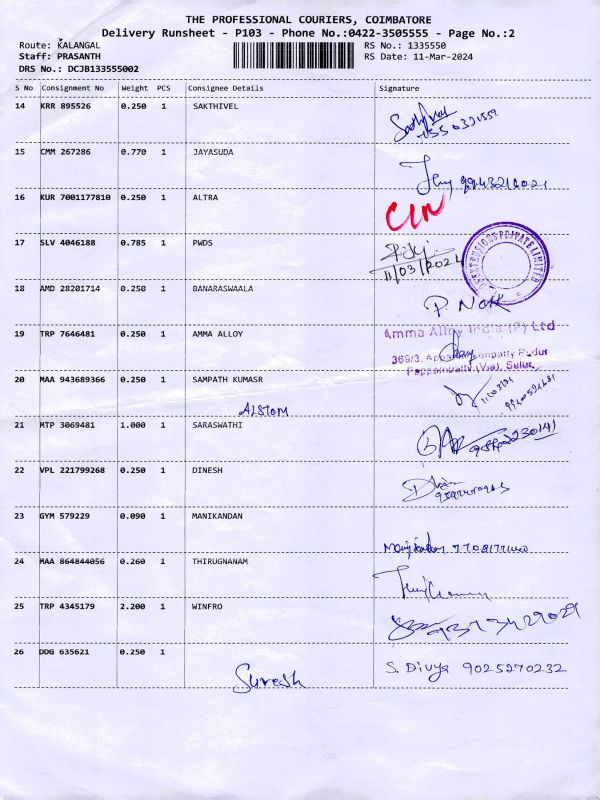 THE PROFESSIONAL COURIERS, COIMBATORE
Delivery Runsheet - P103 - Phone No.:0422-3505555 - Page No.:2
Route: KALANGAL RS No.: 1335550
Staff: PRASANTH RS Date: 11-Mar-2024
DRS No.: DCJB133555002
S No Consignment No Weight PCS Consignee Details Signature
14 KRR 895526 0.250 1 SAKTHIVEL
15 CMM 267286 0.770 1 JAYASUDA
16 KUR 7001177810 0.250 1 ALTRA
17 SLV 4046188 0.785 1 PWDS
11/03/2024
18 AMD 28201714 0.250 1 BANARASWAALA
P. 
19 TRP 7646481 0.250 1 AMMA ALLOY
Amma Alloy India (P) Ltd
369/3, Pudur
Pappampatty (Via), Sulur.
20 MAA 943689366 0.250 1 SAMPATH KUMASR
ALSTOM
21 MTP 3069481 1.000 1 SARASWATHI
22 VPL 221799268 0.250 1 DINESH
23 GYM 579229 0.090 1 MANIKANDAN
24 MAA 864844056 0.260 1 THIRUGNANAM
25 TRP 4345179 2.200 1 WINFRO
26 DDG 635621 0.250 1
Suresh S. Divya 9025270232